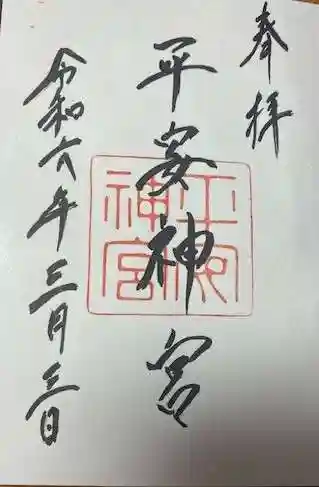 奉拝
平安神宮
平安神宮
令和六年三月三日